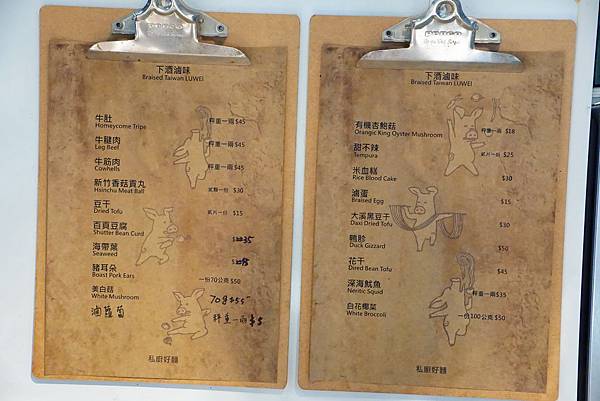 下酒滷味
Braised Taiwan LUWEI
牛肚
Homeycome Tripe 秤重一兩 $45
牛腱肉
Lag Beef 秤重一兩 $45
牛筋肉
Cowhells 秤重一兩 $45
新竹香菇貢丸
Hsinchu Meat Ball 貳顆一份 $30
豆干
Dried Tofu 貳片一份 $15
百頁豆腐
Shutter Bean Curd 35
海帶葉
Seaweed
豬耳朵
Boast Pork Ears 一份70公克 $50
美白菇
White Mushroom 70g $55
滷蘿蔔 秤重一兩 $5
私廚好麵
下酒滷味
Braised Taiwan LUWEI
有機杏鮑菇
Orangic King Oyster Mushroom 秤重一兩 $18
甜不辣
Tempura 貳片一份 $25
米血糕
Rice Blood Cake $30
滷蛋
Braised Egg $15
大溪黑豆干
Daxi Dried Tofu $30
鴨胗
Duck Gizzard $50
花干
Dired Bean Tofu $45
深海魷魚
Neritic Squid 秤重一兩 $35
白花椰菜
White Broccoli 一份100公克 $50
私廚好麵